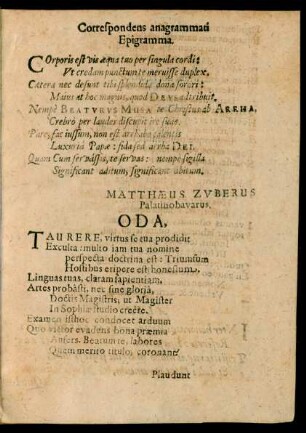 Correspondens anagrammati
Epigramma.
COrporis est vis æqua tuo per singula cordi:
Vt credam punctum te meruisse duplex.
Cætera nec desunt tibi splendida dona sorori:
Maius at hoc magnus, quod DEVS attribuit.
Nempè BEATVRVS MVSA
Crebrò per laudes discutit ire suas.
Luxuria Papæ: fida sed arrha DEI.
Quam Cum servâssis, te servas: nempe sigilla
Significant aditum, significant obitum.
MATTHÆUS ZVBERUS
Palatinobavarus.
ODA,
TAURERE, virtus se tua prodidit
Exculta: multo iam tua nomine
perspecta doctrina est: Triumfum
Hostibus eripere est honestum.
Linguas tuas, claram sapientiam,
Artes probâsti, nec sine gloriâ,
Doctis Magistris, ut Magister
In Sophiæ studio crêere.
Examen isthoc condocet arduum
Quo victor evadens bona præmia
Aufers. Beatum te, labores
Quem merito titulo, coronant
Plaudunt